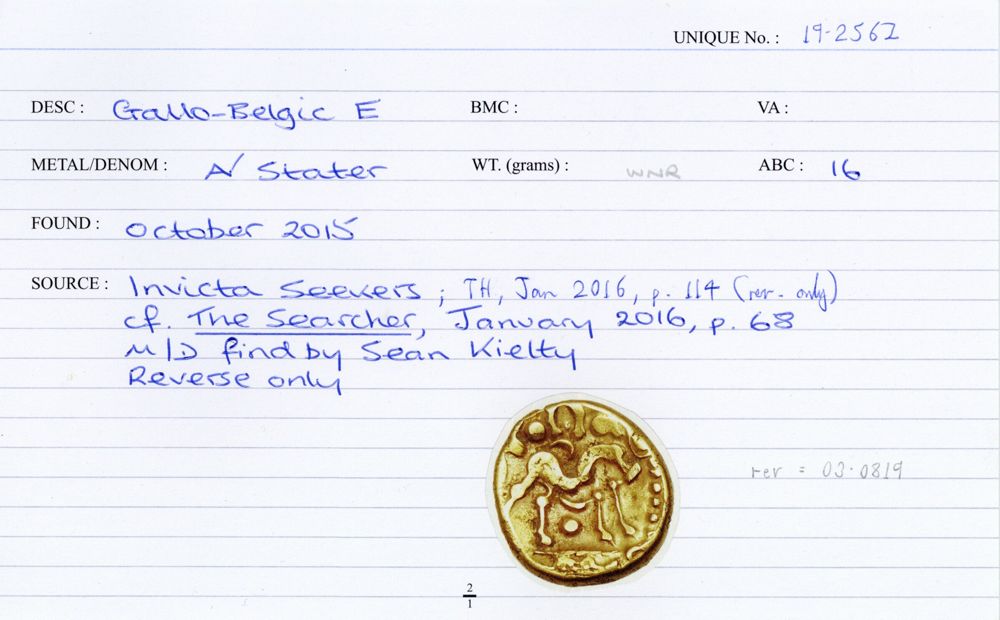 UNIQUE No. : 19-2562
DESC : Gallo-Belgic E BMC : VA :
METAL/DENOM : A/ Stater WT. (grams) : WNR ABC : 16
FOUND : October 2015
SOURCE : Invicta Seekers ; TH, Jan 2016, p. 114 (rev. only)
cf. The Searcher, January 2016, p. 68
M/D find by Sean Kielty
Reverse only
rev = 03.0819
2
1